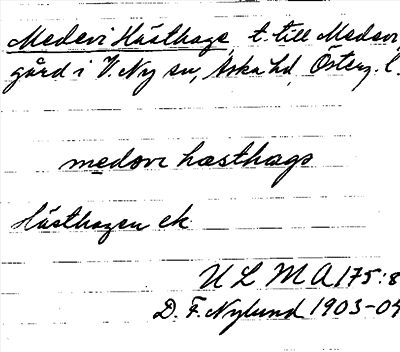 Medevi Hästhage, t. till Medevi
gård i V. Ny sn, Aska hd, Österg. l.
medəvi hæsthags
Hästhagen ek
ULMA 175:8
D. F. Nylund 1903-04